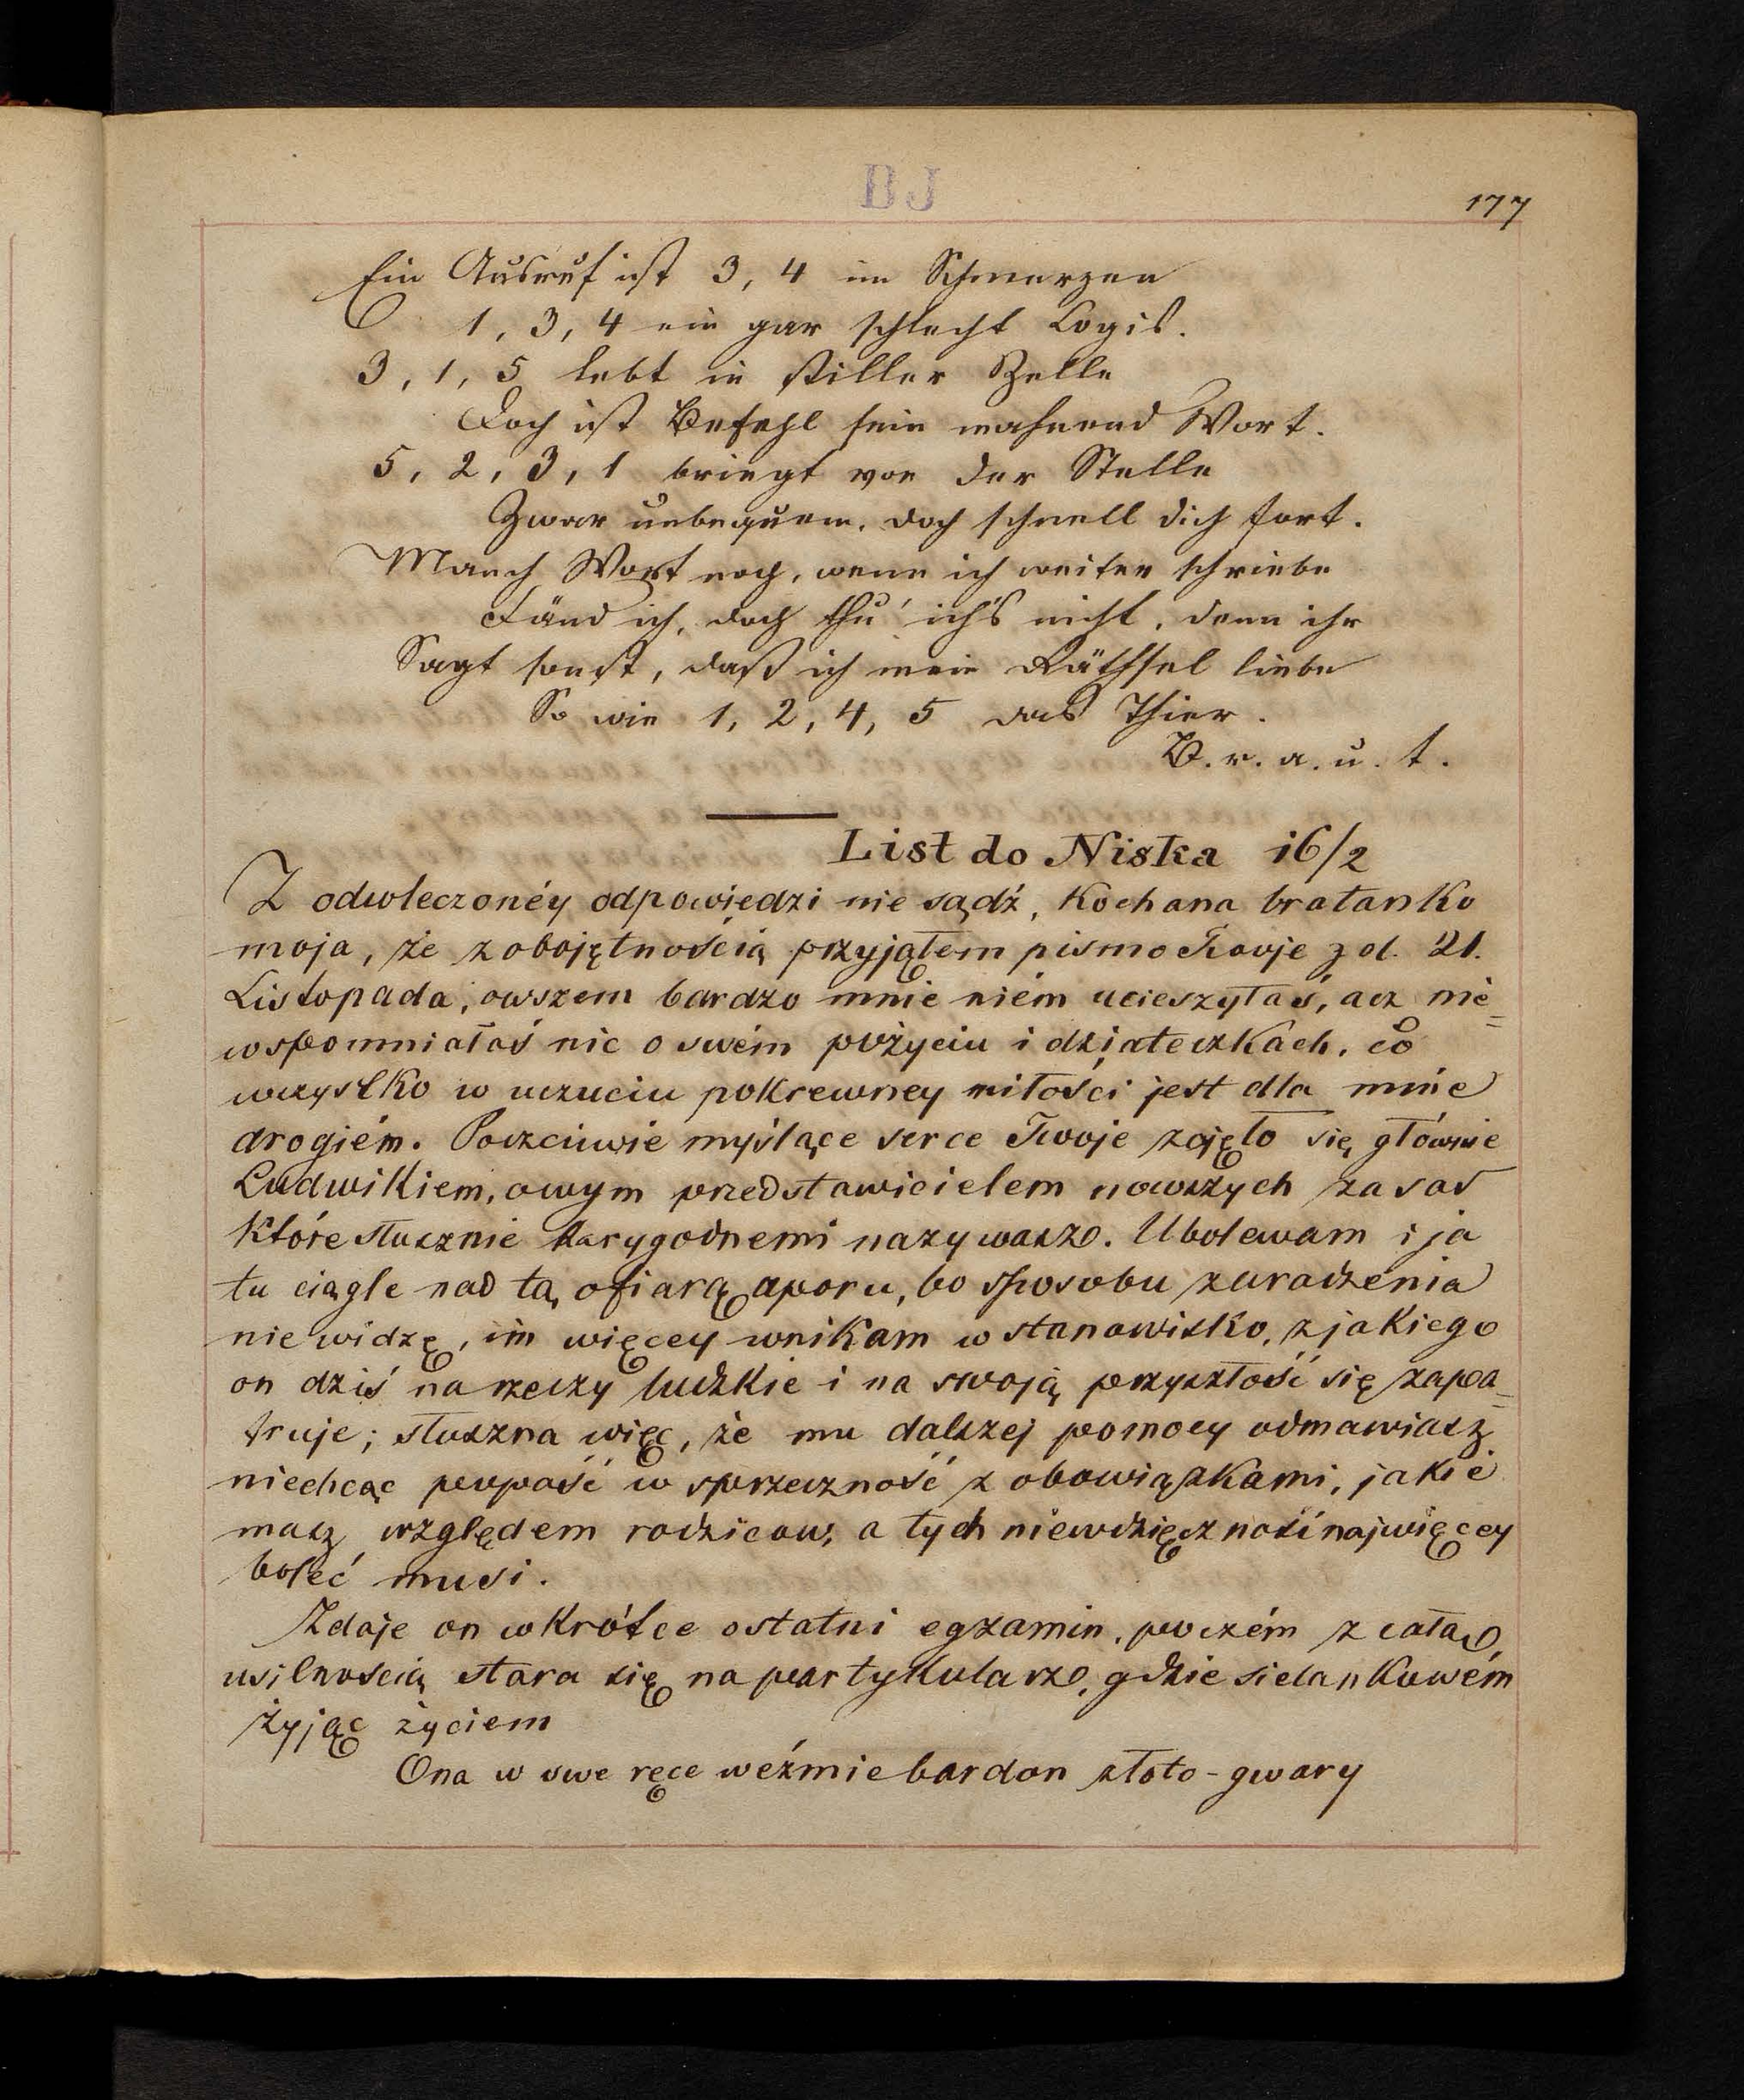 BJ
177
Ein Ausruf ist 3, 4 im Schmerzen
1, 3, 4 ein gar schlecht Logis.
3, 1, 5 lebt in stiller Zelle
Doch ist Befehl sein mahnend Wort.
5, 2, 3, 1 bringt von der Stelle
Zwar unbequem, doch schnell dich fort.
Manch Wort noch, wenn ich weiter schriebe
Fänd ich, doch thu' ich's nicht, denn ihr
Sagt sonst, daß ich mein Räthsel liebe
So wie 1, 2, 4, 5 das Thier.
B. r. a. u. t.
List do Niska 16/2
Z odwleczonéy odpowiedzi nie sądź, kochana bratanko
moja, że z obojętnością przyjąłem pismo Twoje z d. 21.
Listopada, owszem bardzo mnie niém ucieszyłaś, acz nie=
wspomniałaś nic o swém pożyciu i dziateczkach, co
wszystko w uczuciu pokrewney miłości jest dla mnie
drogiém. Poczciwie myślące serce Twoje zajęło się głównie
Ludwikiem, owym przedstawicielem nowszych zasad
które słusznie karygodnemi nazywasz. Ubolewam i ja
tu ciągle nad tą ofiarą uporu, bo sposobu zaradzenia
nie widzę, im więcey wnikam w stanowisko, z jakiego
on dziś na rzeczy ludzkie i na swoją przyszłość się zapa=
truje; słuszna więc, że mu dalszej pomocy odmawiasz
niechcąc popaść w sprzeczność z obowiązkami, jakie
masz względem rodziców, a tych niewdzięczność najwięcey
boleć musi.
Zdaje on wkrótce ostatni egzamin, poczém z całą
usilnością stara się na partykularz, gdzie sielankowém
żyjąc życiem
Ona w swe ręce weźmie bardon złoto-gwary